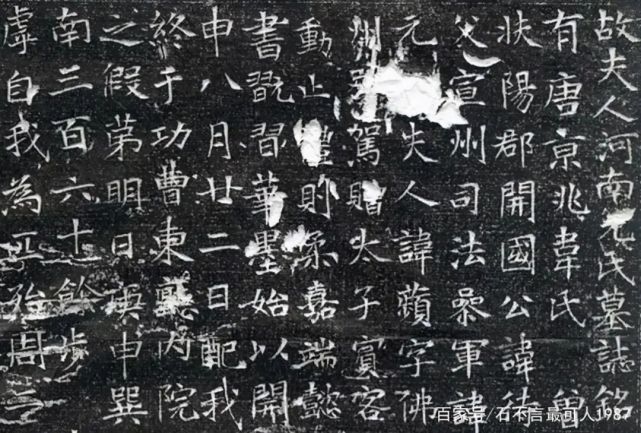 故夫人河南元氏墓誌銘
有唐京兆韋氏 曾
扶陽郡開國公諱待
父宣州司法參軍諱
元 夫人諱蘋字佛
州 駕贈太子賓客
動止禮則柔嘉端懿
書翫習華墨始以開
申八月廿二日配我
終于功曹東廳內院
之假第明日庚申巽
南三百六十餘步
虛自我為匹殆周二
百家号/石不言最可人1987